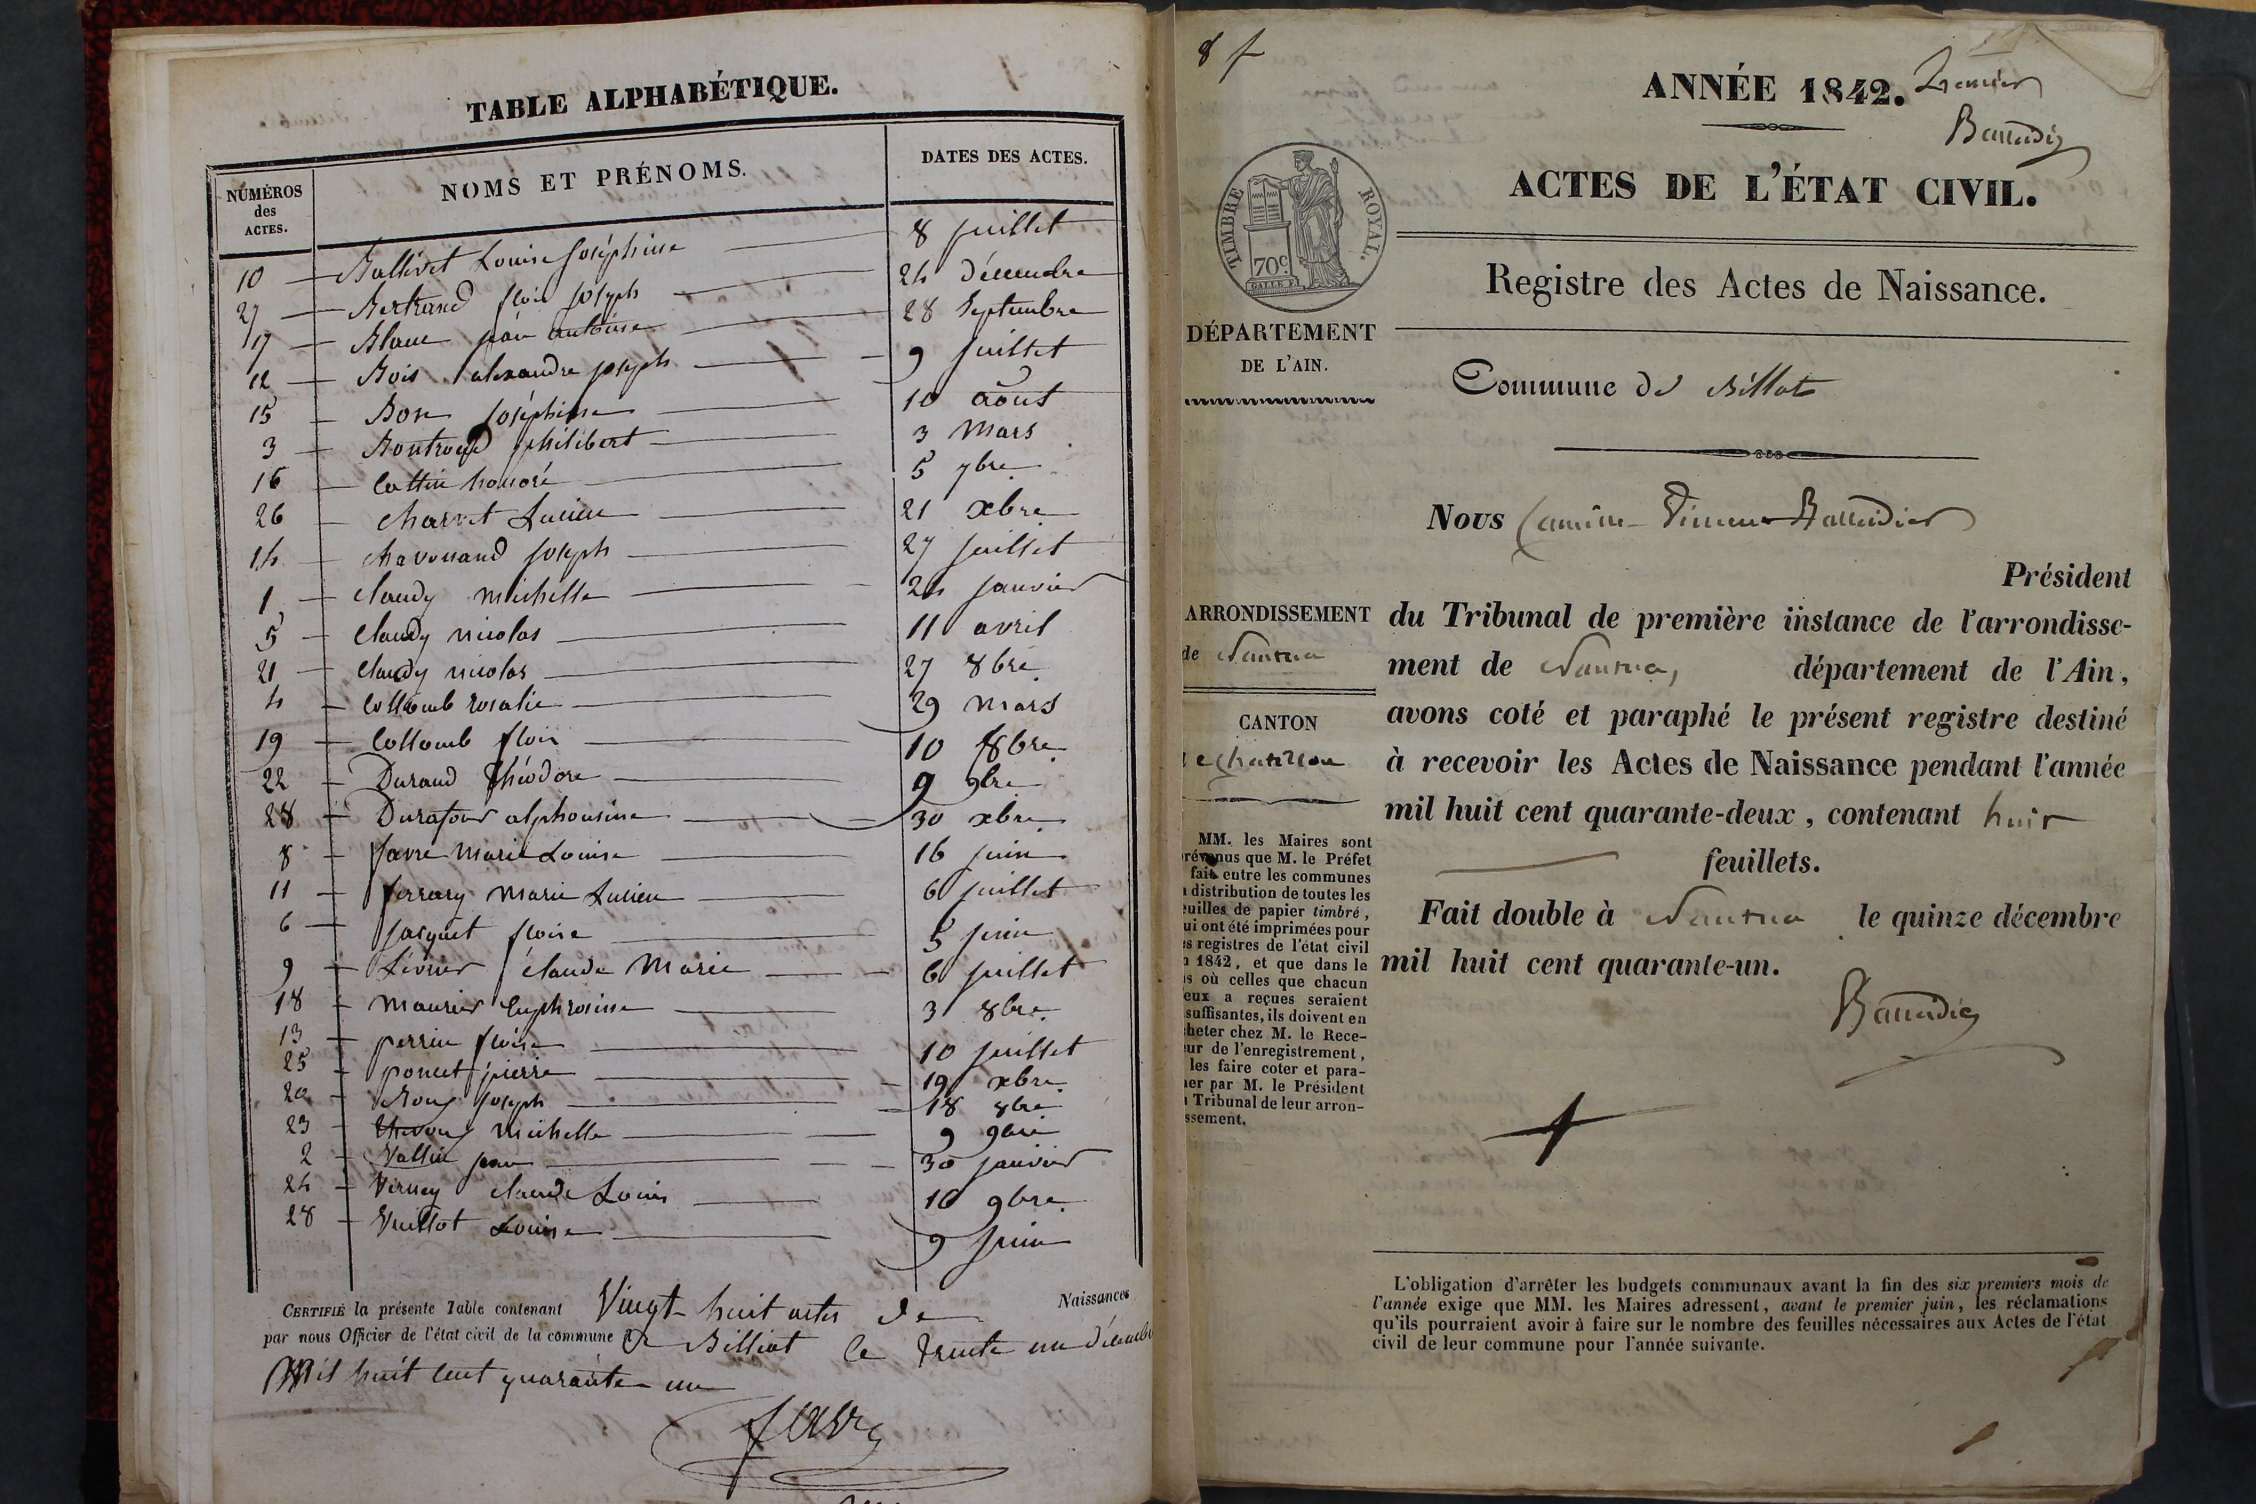 TABLE ALPHABÉTIQUE.
NUMÉROS des ACTES. NOMS ET PRÉNOMS. DATES DES ACTES.
10 Ballivet Louise Joséphine 8 juillet
27 Bertrand Joseph 24 décembre
17 Blanc antoine 28 Septembre
12 Bois alexandre joseph 9 juillet
15 Joséphine 10 août
3 philibert 3 Mars
16 Cottin honoré 5 7bre
26 Charvet Lucien 21 xbre
14 Chavouand joseph 27 juillet
1 Claudy michelle 24 janvier
5 Claudy nicolas 11 avril
21 Claudy nicolas 27 8bre
4 Collomb rosalie 29 mars
19 Collomb 10 8bre
22 Durand théodore 9 9bre
28 Durafour alphonsine 30 xbre
8 favre Marie Louise 16 juin
11 ferrary Marie Lucien 6 juillet
6 jacquet 5 juin
9 Lévrier Claude Marie 6 juillet
18 Maurier Euphrosine 3 8bre
13 perrin 10 juillet
25 poncet pierre 19 xbre
20 Roux joseph 18 8bre
23 michelle 9 9bre
2 Vallin jean 30 janvier
24 Verney Claude Louis 16 9bre
28 Vuillot Louise 9 juin
CERTIFIÉ la présente Table contenant Vingt-huit actes de Naissances
par nous Officier de l'état civil de la commune de Billiat le trente un décembre
Mil huit cent quarante-un
favre
8 f
ANNÉE 1842. Premier
Baudier
ACTES DE L'ÉTAT CIVIL.
TIMBRE ROYAL.
70c.
Registre des Actes de Naissance.
DÉPARTEMENT
DE L'AIN.
Commune de Billiat
Nous
Président
ARRONDISSEMENT
de Nantua
du Tribunal de première instance de l'arrondisse-
ment de Nantua, département de l'Ain,
avons coté et paraphé le présent registre destiné
à recevoir les Actes de Naissance pendant l'année
mil huit cent quarante-deux, contenant huit
feuillets.
Fait double à Nantua le quinze décembre
mil huit cent quarante-un.
CANTON
e chatillon
MM. les Maires sont
révenus que M. le Préfet
fait entre les communes
distribution de toutes les
euilles de papier timbré,
ui ont été imprimées pour
s registres de l'état civil
1842, et que dans le
s où celles que chacun
eux a reçues seraient
suffisantes, ils doivent en
heter chez M. le Rece-
ur de l'enregistrement,
les faire coter et para-
er par M. le Président
Tribunal de leur arron-
ssement.
L'obligation d'arrêter les budgets communaux avant la fin des six premiers mois de
l'année exige que MM. les Maires adressent, avant le premier juin, les réclamations
qu'ils pourraient avoir à faire sur le nombre des feuilles nécessaires aux Actes de l'état
civil de leur commune pour l'année suivante.